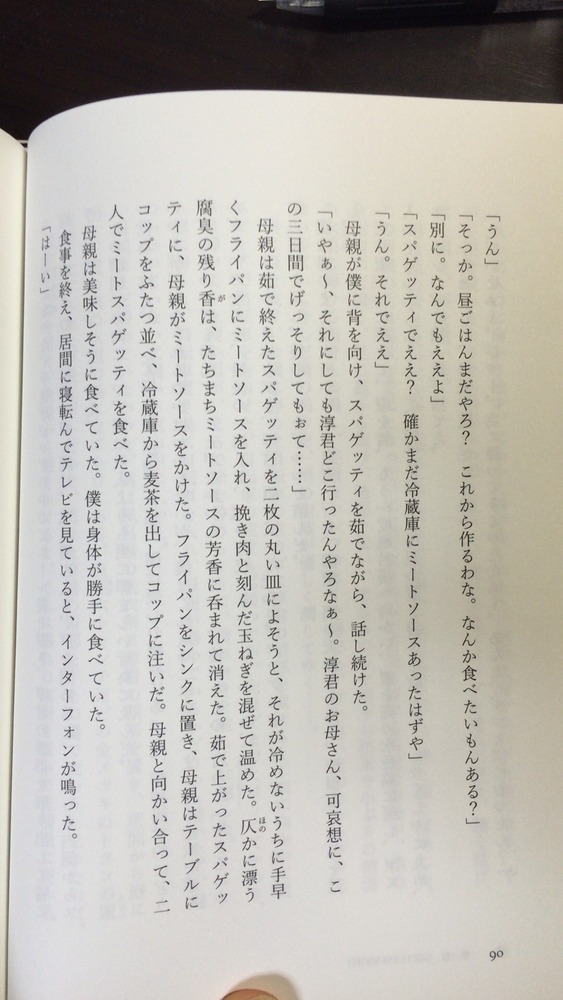 「うん」
「そっか。昼ごはんまだやろ？　これから作るわな。なんか食べたいもんある？」
「別に。なんでもええよ」
「スパゲッティでええ？　確かまだ冷蔵庫にミートソースあったはずや」
「うん。それでええ」
母親が僕に背を向け、スパゲッティを茹でながら、話し続けた。
「いやぁ〜、それにしても淳君どこ行ったんやろなぁ〜。淳君のお母さん、可哀想に、こ
の三日間でげっそりしてもぉて……」
母親は茹で終えたスパゲッティを二枚の丸い皿によそうと、それが冷めないうちに手早
くフライパンにミートソースを入れ、挽き肉と刻んだ玉ねぎを混ぜて温めた。仄かに漂う
腐臭の残り香は、たちまちミートソースの芳香に呑まれて消えた。茹で上がったスパゲッ
ティに、母親がミートソースをかけた。フライパンをシンクに置き、母親はテーブルに
コップをふたつ並べ、冷蔵庫から麦茶を出してコップに注いだ。母親と向かい合って、二
人でミートスパゲッティを食べた。
母親は美味しそうに食べていた。僕は身体が勝手に食べていた。
食事を終え、居間に寝転んでテレビを見ていると、インターフォンが鳴った。
「はーい」
90